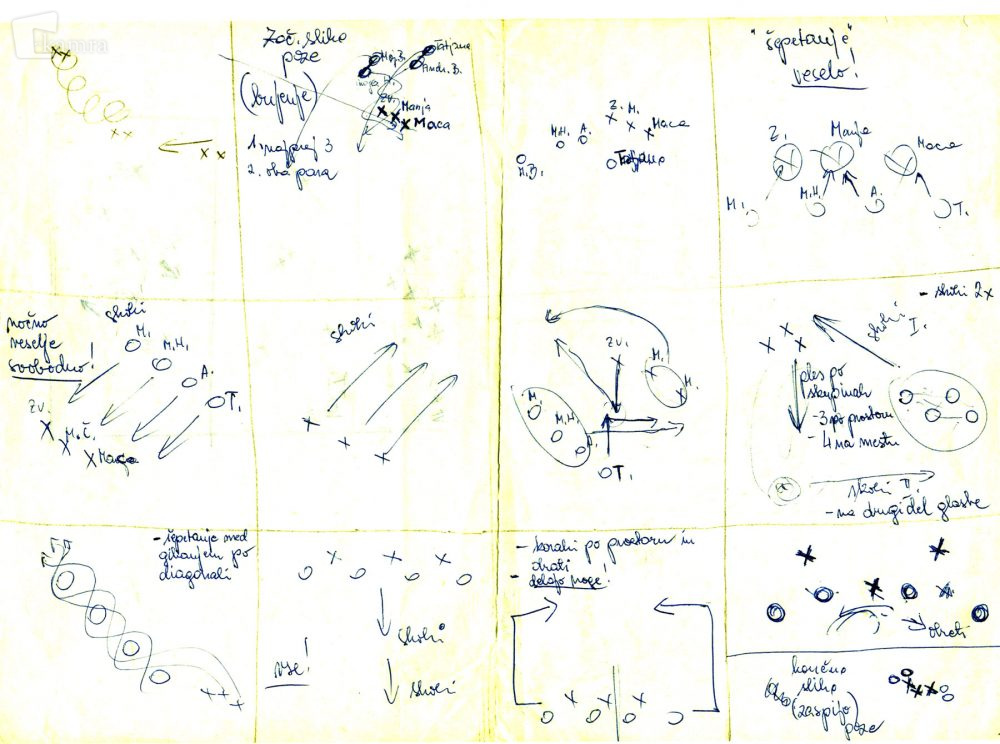 kamra
Zač. slika
poze
(bujenje)
1. najprej 3
2. oba para
Maj. B.
Tatjana
Andr. B.
Zv.
Manja
Maca
Z. M.
Maca
M.H. A.
M.B.
Tatjana
"šepetanje"
veselo!
Z.
Manja
Maca
M.
M.H.
A.
T.
nočno
veselje
svobodno!
skoki
M.
M.H.
A.
T.
Zv.
M.Č.
Maca
skoki
Zv.
M.
M.
M.
M.H.
A.
T.
- skoki 2x
skoki
I.
ples po
skupinah
- 3 po prostoru
- 4 na mestu
skoki II.
- na drugi del glasbe
- šepetanje med
gibanjem po
diagonali
vse!
skoki
skoki
- koraki po prostoru in
obrati
- delajo noge!
obrati
končna
slika
(zaspijo)
poze